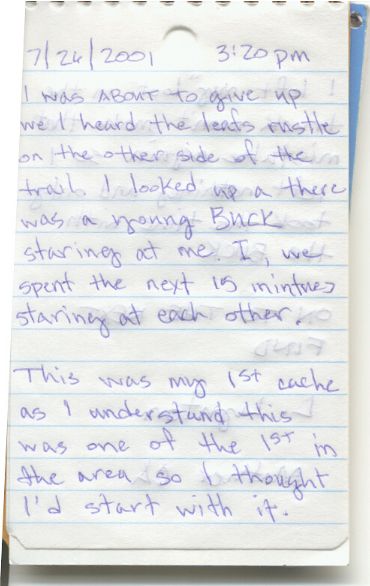 7/26/2001 3:20pm
I was ABOUT to give up
we I heard the leafs rustle
on the other side of the
trail. I looked up a there
was a young Buck
staring at me. I, we
spent the next 15 mintues
staring at each other.
This was my 1st cache
as I understand this
was one of the 1st in
the area so I thought
I'd start with it.